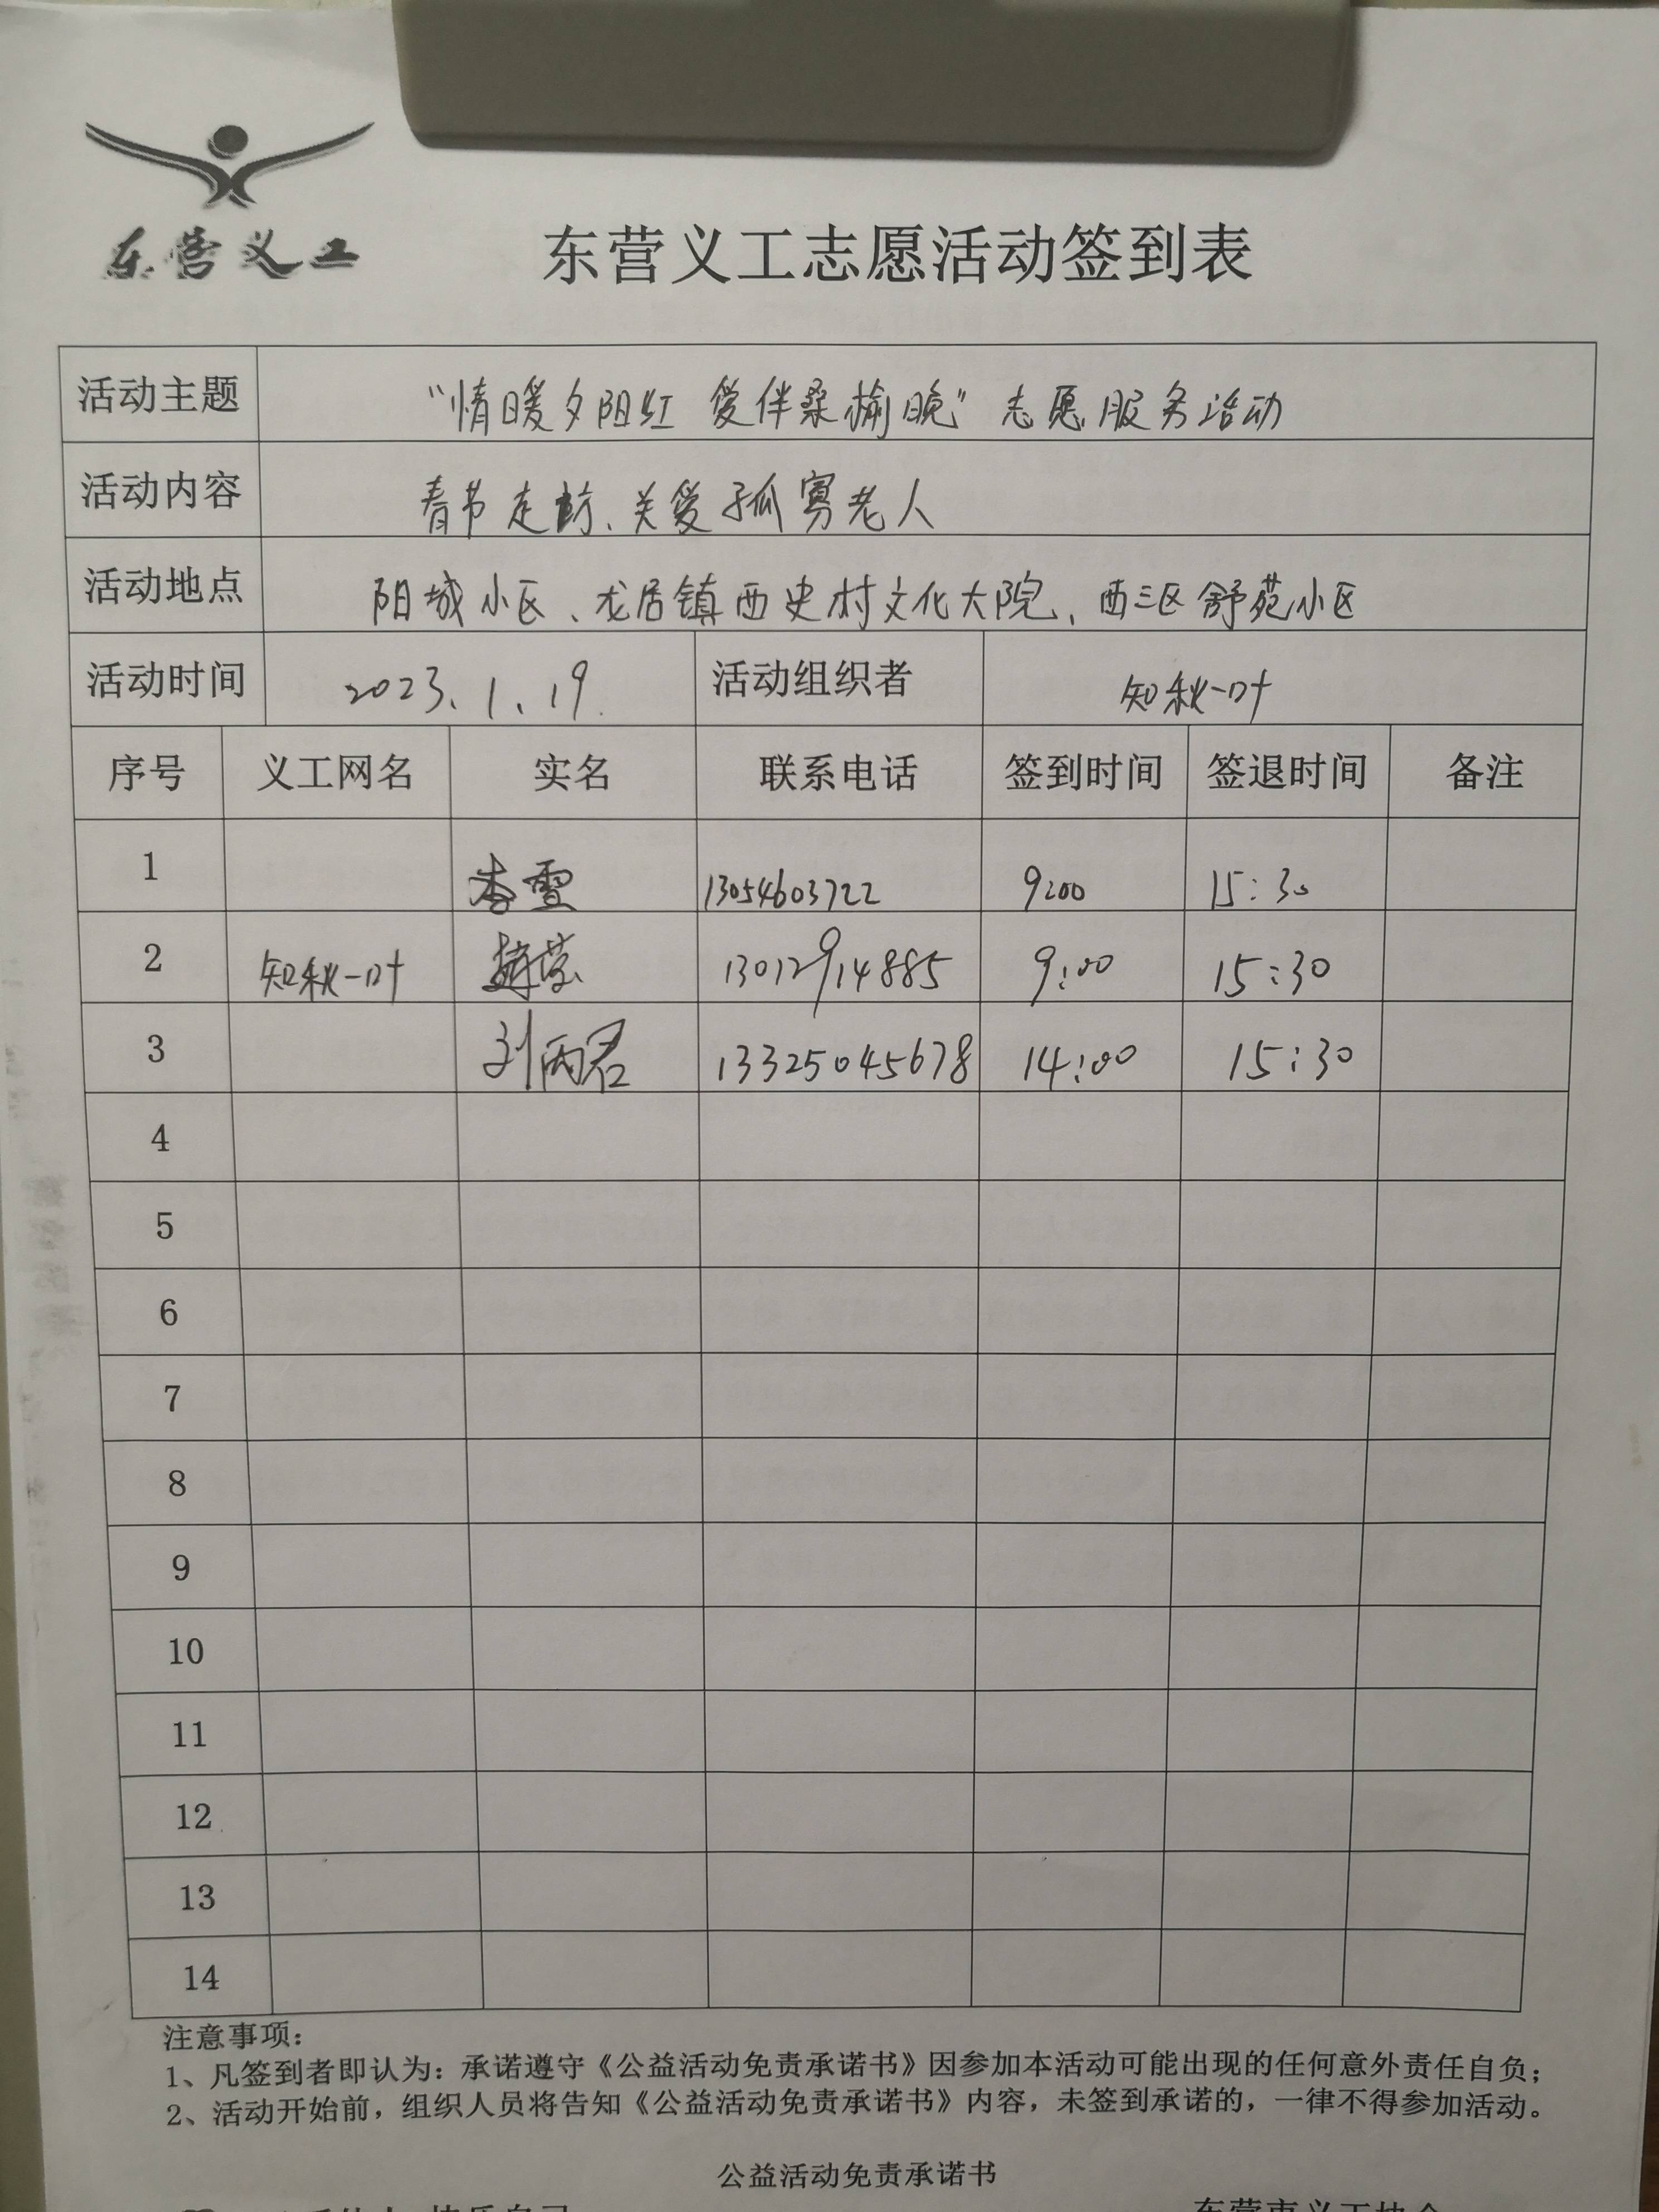 东营义工
东营义工志愿活动签到表
活动主题 “情暖夕阳红 爱伴桑榆晚”志愿服务活动
活动内容 春节走访、关爱孤寡老人
活动地点 阳城小区、龙居镇西史村文化大院、西三区舒苑小区
活动时间 2023.1.19. 活动组织者 知秋一叶
序号 义工网名 实名 联系电话 签到时间 签退时间 备注
1 李雪 13054603722 9:00 15:30
2 知秋一叶 13012914885 9:00 15:30
3 刘丙君 13325045678 14:00 15:30
4
5
6
7
8
9
10
11
12
13
14
注意事项：
1、凡签到者即认为：承诺遵守《公益活动免责承诺书》因参加本活动可能出现的任何意外责任自负；
2、活动开始前，组织人员将告知《公益活动免责承诺书》内容，未签到承诺的，一律不得参加活动。
公益活动免责承诺书
东营市义工协会